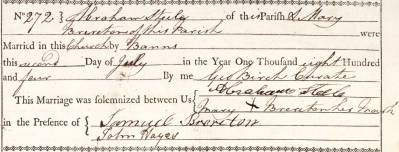 No 272 } Abraham Steele of this Parish & Mary
Brereton of this Parish were
Married in this Church by Banns
this second Day of July in the Year One Thousand eight Hundred
and four By me Geo Birch Curate
This Marriage was solemnized between Us { Abraham Steele
Mary X Brereton her mark
in the Presence of { Samuel Brereton
John Hayes